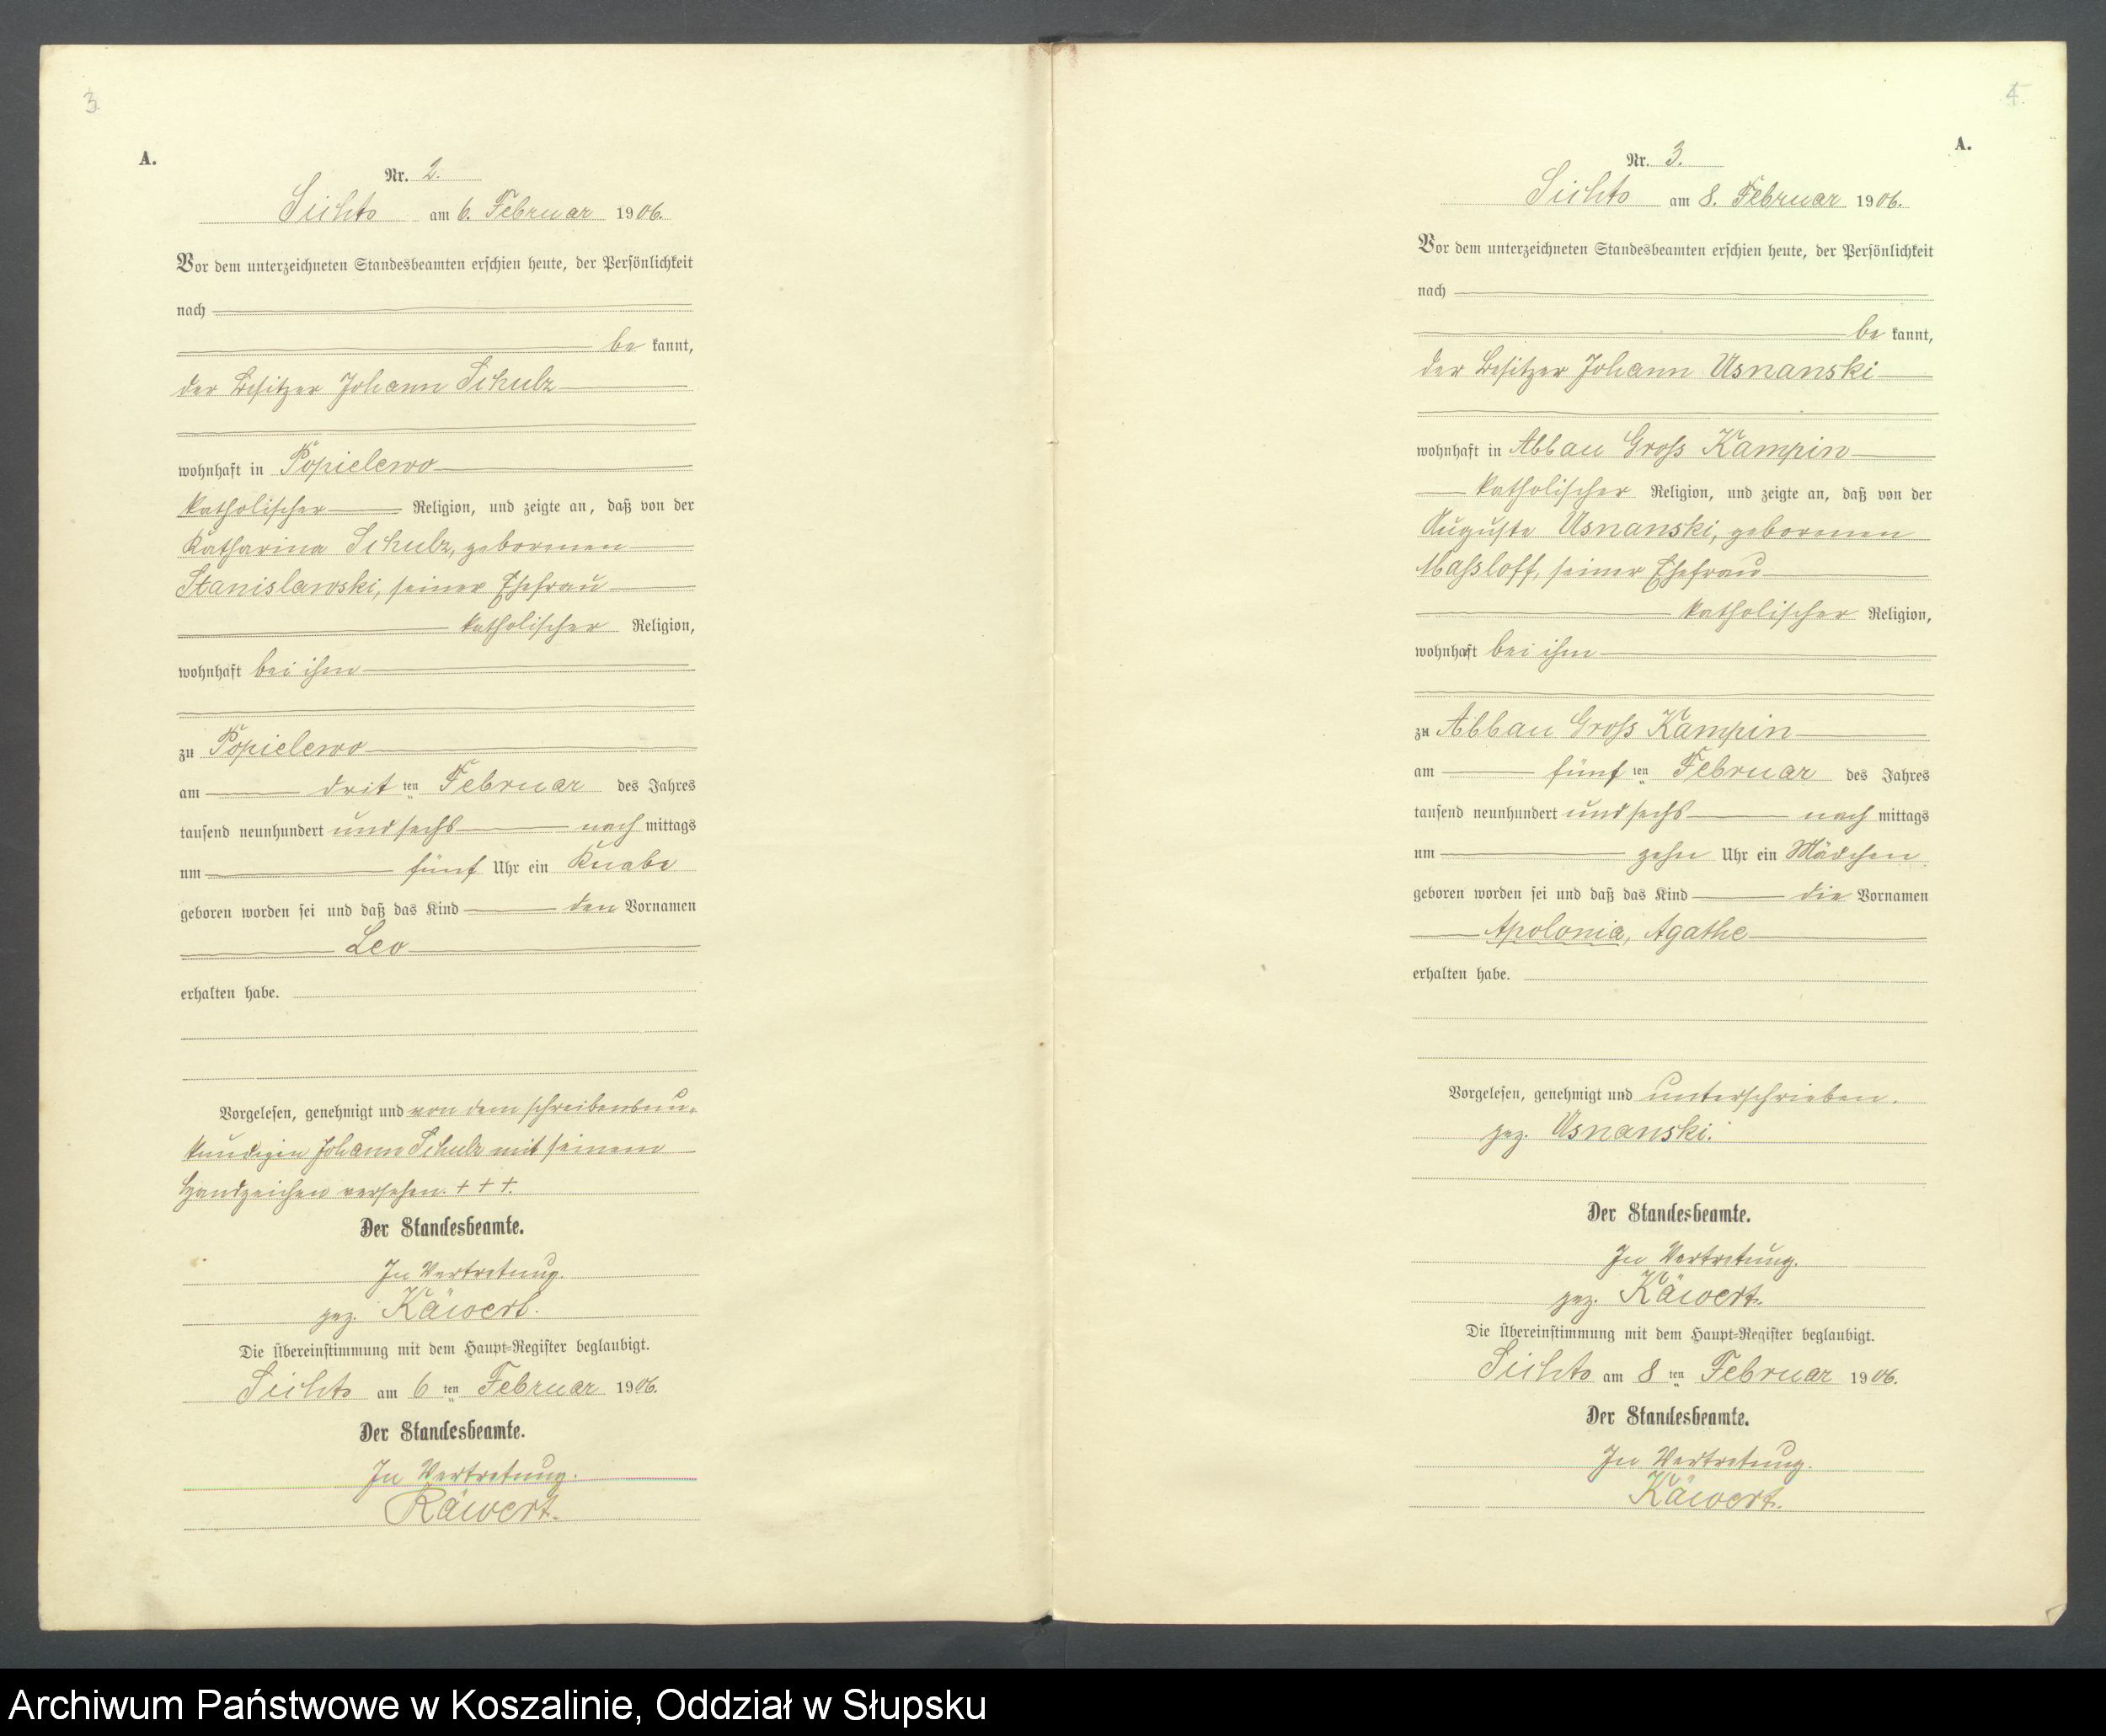 3
A.
Nr. 2.
Sichts am 6. Februar 1906.
Vor dem unterzeichneten Standesbeamten erschien heute, der Persönlichkeit
nach
be kannt,
der Besitzer Johann Schulz
wohnhaft in Popielewo
katholischer Religion, und zeigte an, daß von der
Katharina Schulz, geborenen
Stanislawski, seiner Ehefrau
katholischer Religion,
wohnhaft bei ihm
zu Popielewo
am drit ten Februar des Jahres
tausend neunhundert und sechs nach mittags
um fünf Uhr ein Knabe
geboren worden sei und daß das Kind den Vornamen
Leo
erhalten habe.
Vorgelesen, genehmigt und von dem schreibensun-
kundigen Johann Schulz mit seinem
Handzeichen versehen. + + +.
Der Standesbeamte.
In Vertretung.
gez. Käwert.
Die Übereinstimmung mit dem Haupt-Register beglaubigt.
Sichts am 6 ten Februar 1906.
Der Standesbeamte.
In Vertretung.
Käwert.
4.
A.
Nr. 3.
Sichts am 8. Februar 1906.
Vor dem unterzeichneten Standesbeamten erschien heute, der Persönlichkeit
nach
be kannt,
der Besitzer Johann Usnanski
wohnhaft in Abbau Gross Kampin
katholischer Religion, und zeigte an, daß von der
Auguste Usnanski, geborenen
Massloff, seiner Ehefrau
katholischer Religion,
wohnhaft bei ihm
zu Abbau Gross Kampin
am fünf ten Februar des Jahres
tausend neunhundert und sechs nach mittags
um zehn Uhr ein Mädchen
geboren worden sei und daß das Kind die Vornamen
Apolonia, Agathe
erhalten habe.
Vorgelesen, genehmigt und unterschrieben.
gez. Usnanski.
Der Standesbeamte.
In Vertretung.
gez. Käwert.
Die Übereinstimmung mit dem Haupt-Register beglaubigt.
Sichts am 8 ten Februar 1906.
Der Standesbeamte.
In Vertretung.
Käwert.
Archiwum Państwowe w Koszalinie, Oddział w Słupsku